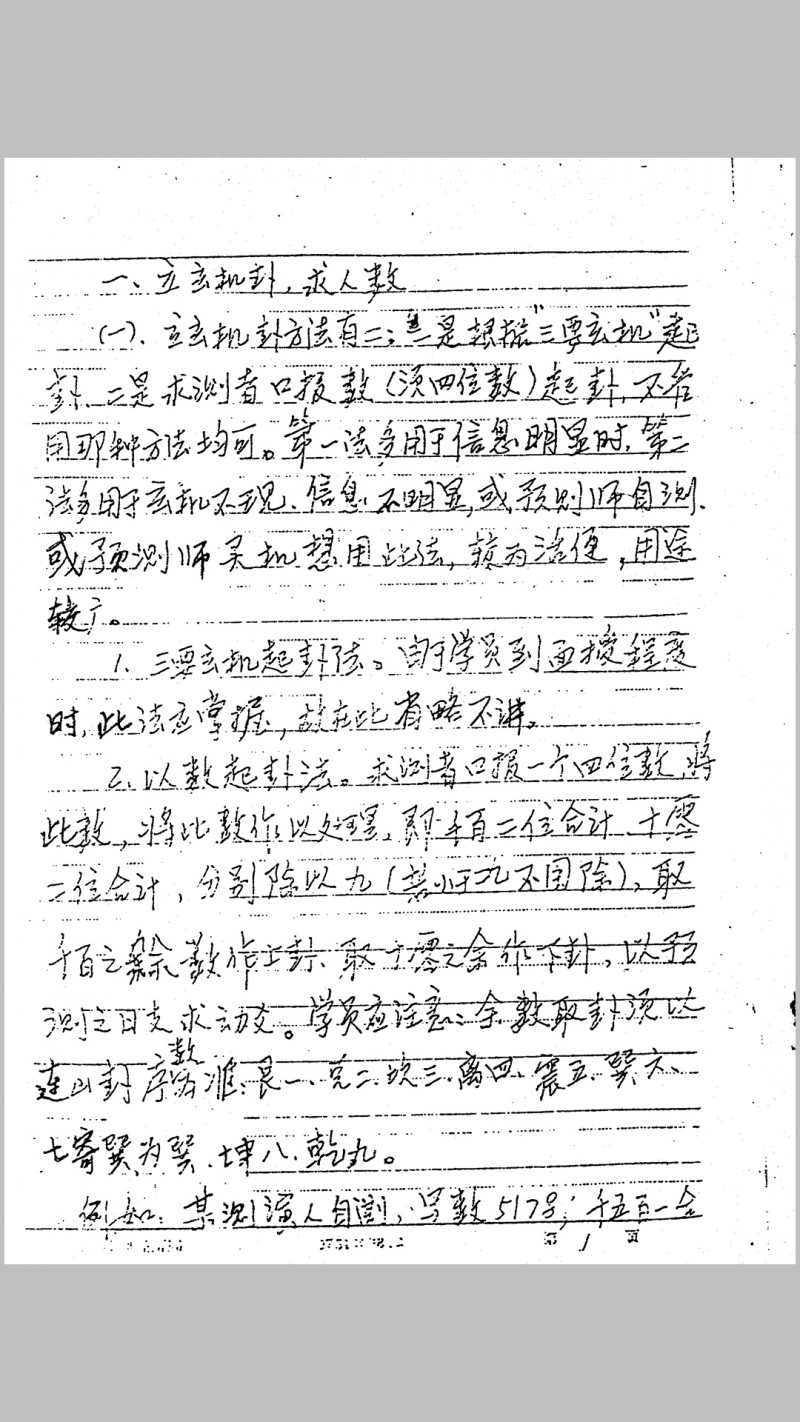 一、立玄机卦，求人数
(一)、立玄机卦方法有二：一是根据“三要玄机”起
卦、二是求测者口报数(须四位数)起卦，不管
用那种方法均可。第一法多用于信息明显时，第二
法多用于玄机不现、信息不明显，或预测师自测、
或预测师灵机想用此法，较为活便，用途
较广。
1、三要玄机起卦法。由于学员到面授程度
时，此法应掌握，故在此省略不讲。
二、以数起卦法。求测者口报一个四位数，将
此数，将此数作以处理，即千百二位合计、十零
二位合计，分别除以九(若小于九不用除)，取
千百之余数作上卦、取十零之余作下卦，以预
测之日支求动爻。学员应注意：余数取卦须以
连山卦序数为准、艮一、兑二、坎三、离四、震五、巽六、
七寄巽为巽、坤八、乾九。
例如：某测演人自测，写数
千五百一合
第 1 页